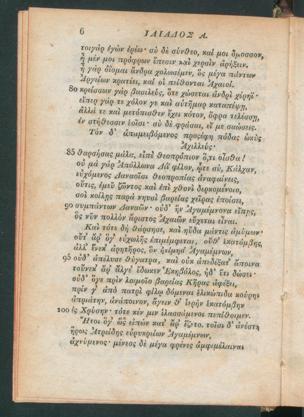 6 ΙΛΙΑΔΟΣ Α.
τοιγὰρ ἐγὼν ἐρέω· σὺ δὲ σύνθεο, καί μοι ὄμοσσον,
ἦ μέν μοι πρόφρων ἔπεσιν καὶ χερσὶν ἀρήξειν.
ἦ γὰρ ὀΐομαι ἄνδρα χολωσέμεν, ὃς μέγα πάντων
Ἀργείων κρατέει, καί οἱ πείθονται Ἀχαιοί.
80 κρείσσων γὰρ βασιλεὺς, ὅτε χώσεται ἀνδρὶ χέρηϊ·
εἴπερ γάρ τε χόλον γε καὶ αὐτῆμαρ καταπέψῃ,
ἀλλά τε καὶ μετόπισθεν ἔχει κότον, ὄφρα τελέσσῃ,
ἐν στήθεσσιν ἑοῖσι· σὺ δὲ φράσαι, εἴ με σαώσεις.
Τὸν δ' ἀπαμειβόμενος προσέφη πόδας ὠκὺς
Ἀχιλλεύς·
85 θαρσήσας μάλα, εἰπὲ θεοπρόπιον ὅ,τι οἶσθα!
οὐ μὰ γὰρ Ἀπόλλωνα Διῒ φίλον, ᾧτε σὺ, Κάλχαν,
εὐχόμενος Δαναοῖσι θεοπροπίας ἀναφαίνεις,
οὔτις, ἐμεῦ ζῶντος καὶ ἐπὶ χθονὶ δερκομένοιο,
σοὶ κοίλῃς παρὰ νηυσὶ βαρείας χεῖρας ἐποίσει,
90 συμπάντων Δαναῶν· οὐδ' ἢν Ἀγαμέμνονα εἴπῃς,
ὃς νῦν πολλὸν ἄριστος Ἀχαιῶν εὔχεται εἶναι.
Καὶ τότε δὴ θάρσησε, καὶ ηὔδα μάντις ἀμύμων·
οὔτ' ἄρ' ὅγ' εὐχωλῆς ἐπιμέμφεται, οὔθ' ἑκατόμβης,
ἀλλ' ἕνεκ' ἀρητῆρος, ὃν ἠτίμησ' Ἀγαμέμνων,
95 οὐδ' ἀπέλυσε θύγατρα, καὶ οὐκ ἀπεδέξατ' ἄποινα
τοὔνεκ' ἄρ' ἄλγε' ἔδωκεν Ἑκηβόλος, ἠδ' ἔτι δώσει·
οὐδ' ὅγε πρὶν λοιμοῖο βαρείας Κῆρας ἀφέξει,
πρίν γ' ἀπὸ πατρὶ φίλῳ δόμεναι ἑλικώπιδα κούρην
ἀπριάτην, ἀνάποινον, ἄγειν θ' ἱερὴν ἑκατόμβην
100 ἐς Χρύσην· τότε κέν μιν ἱλασσάμενοι πεπίθοιμεν.
Ἤτοι ὅγ' ὣς εἰπὼν κατ' ἄρ' ἕζετο. τοῖσι δ' ἀνέστη
ἥρως Ἀτρείδης εὐρυκρείων Ἀγαμέμνων,
ἀχνύμενος· μένεος δὲ μέγα φρένες ἀμφιμέλαιναι